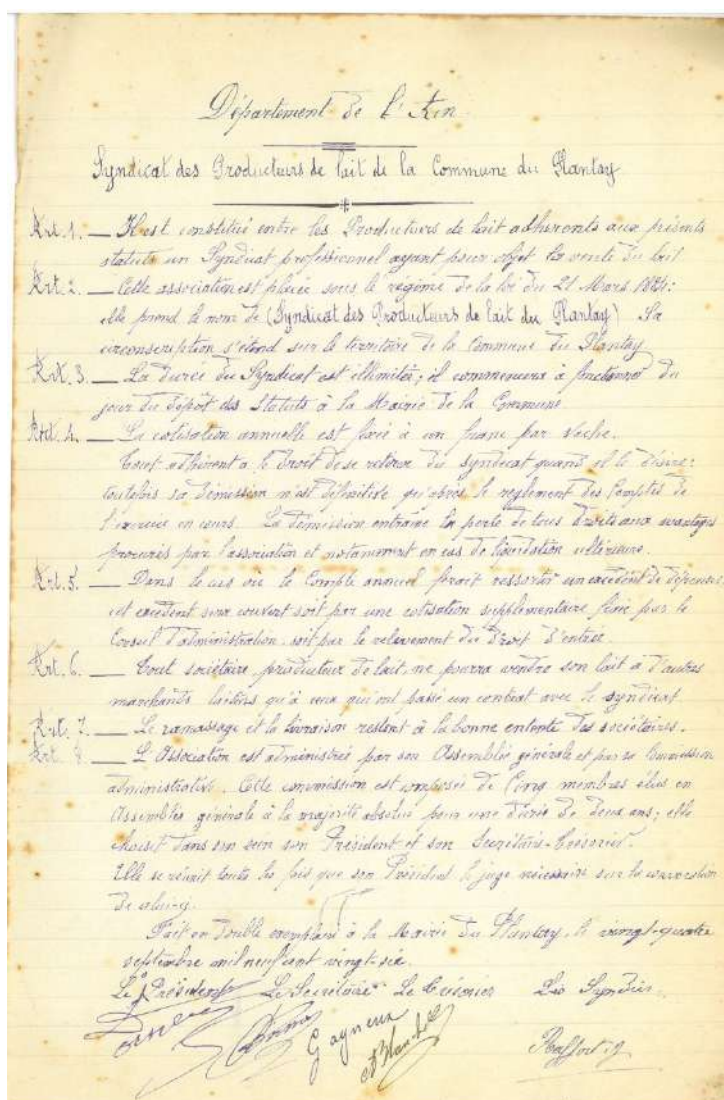 Département de l'Ain
Syndicat des Producteurs de lait de la Commune du Plantay
Art. 1. — Il est constitué entre les Producteurs de lait adhérents aux présents
statuts un Syndicat professionnel ayant pour objet la vente du lait
Art. 2. — Cette association est placée sous le régime de la loi du 21 Mars 1884:
elle prend le nom de (Syndicat des Producteurs de lait du Plantay) Sa
circonscription s'étend sur le territoire de la Commune du Plantay
Art. 3. — La durée du Syndicat est illimitée; il commencera à fonctionner du
jour du dépôt des Statuts à la Mairie de la Commune
Art. 4. — La cotisation annuelle est fixée à un franc par vache.
Tout adhérent a le droit de se retirer du syndicat quand il le désire:
toutefois sa démission n'est définitive qu'après le règlement des Comptes de
l'exercice en cours. La démission entraîne la perte de tous droits aux avantages
procurés par l'association et notamment en cas de liquidation ultérieure.
Art. 5. — Dans le cas où le Compte annuel ferait ressortir un excédent de dépenses
cet excédent sera couvert soit par une cotisation supplémentaire fixée par le
Conseil d'administration, soit par le relèvement du Droit d'entrée.
Art. 6. — Tout sociétaire, producteur de lait, ne pourra vendre son lait à d'autres
marchands laitiers qu'à ceux qui ont passé un contrat avec le syndicat
Art. 7. — Le ramassage et la livraison restent à la bonne entente des sociétaires.
Art. 8. — L'Association est administrée par son Assemblée générale et par sa Commission
administrative. Cette commission est composée de Cinq membres élus en
Assemblée générale à la majorité absolue pour une durée de deux ans; elle
choisit dans son sein son Président et son Secrétaire-Trésorier.
Elle se réunit toutes les fois que son Président le juge nécessaire sur la convocation
de celui-ci.
Fait en double exemplaire à la Mairie du Plantay, le vingt-quatre
septembre mil neuf cent vingt-six.
Le Président Le Secrétaire Le Trésorier Les Syndics
Gagneux